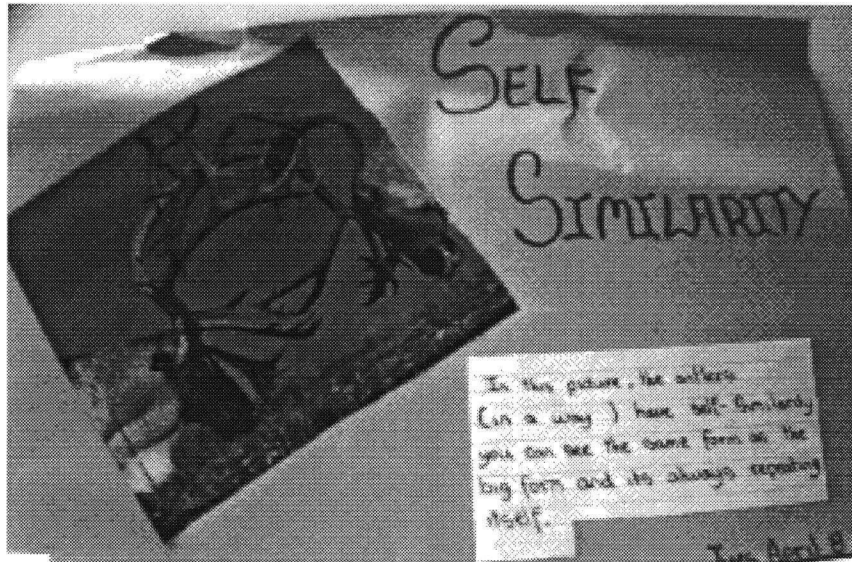 SELF
SIMILARITY
In this picture, the antlers
(in a way) have self-similarity
you can see the same form as the
big form and its always repeating
itself.
April 8